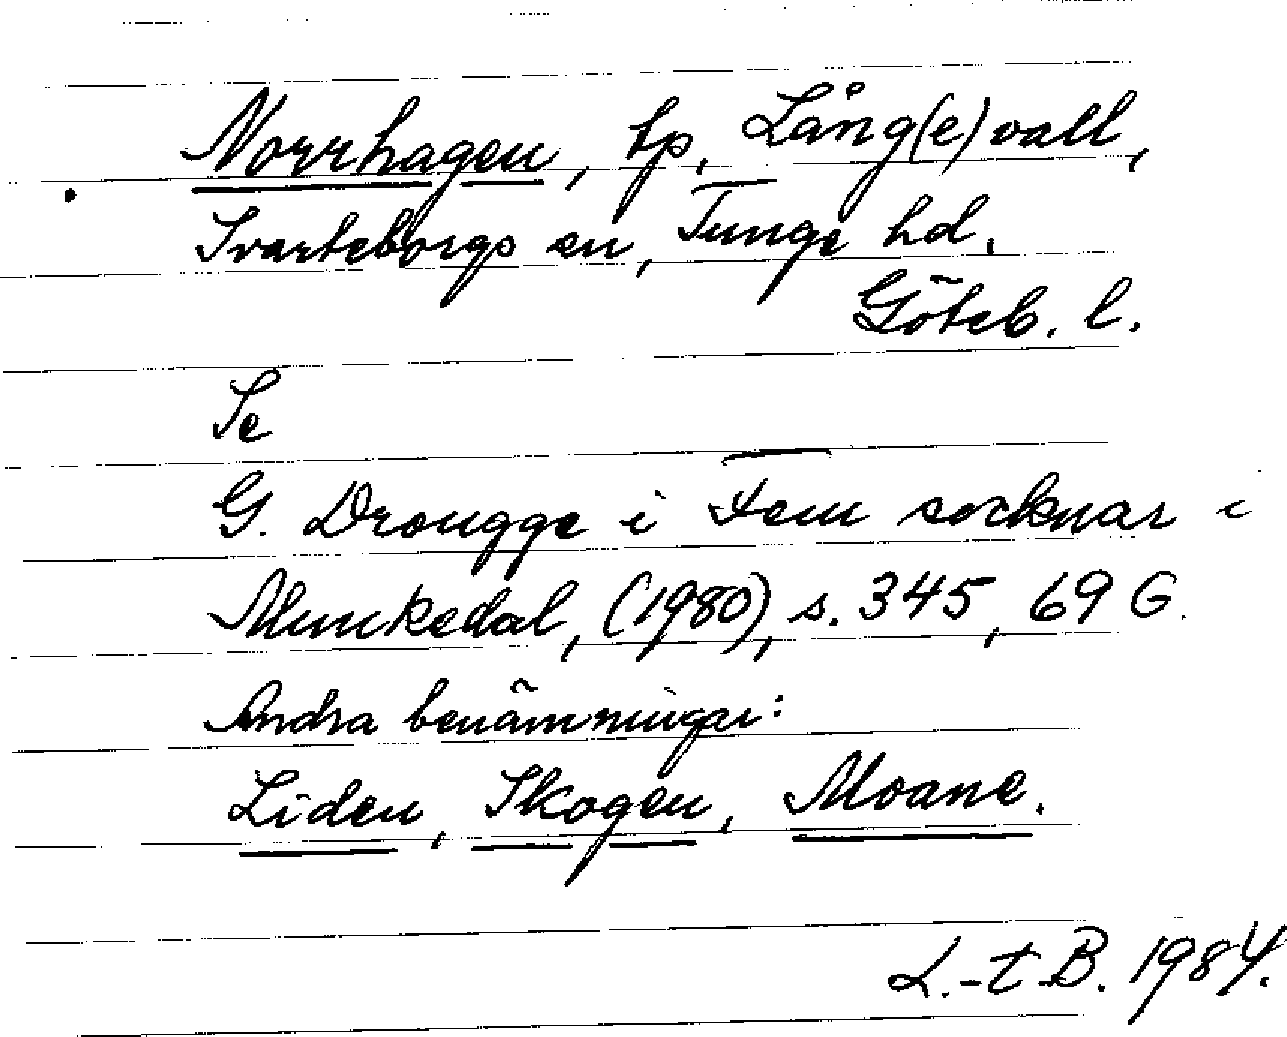 Norrhagen, tp, Lång(e)vall,
Svarteborgs sn, Tunge hd.
Göteb. l.
Se
G. Drougge i Fem socknar i
Munkedal, (1980), s. 345, 69 G.
Andra benämningar:
Liden, Skogen, Moane.
L.-t B. 1984.